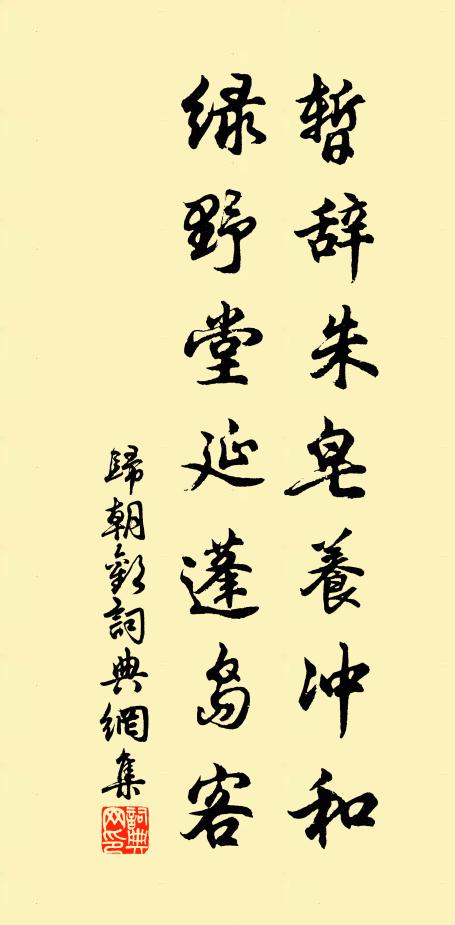 暫辞朱皂養冲和
緑野堂延蓬岛客
歸朝歡詞典網集
詞典網印